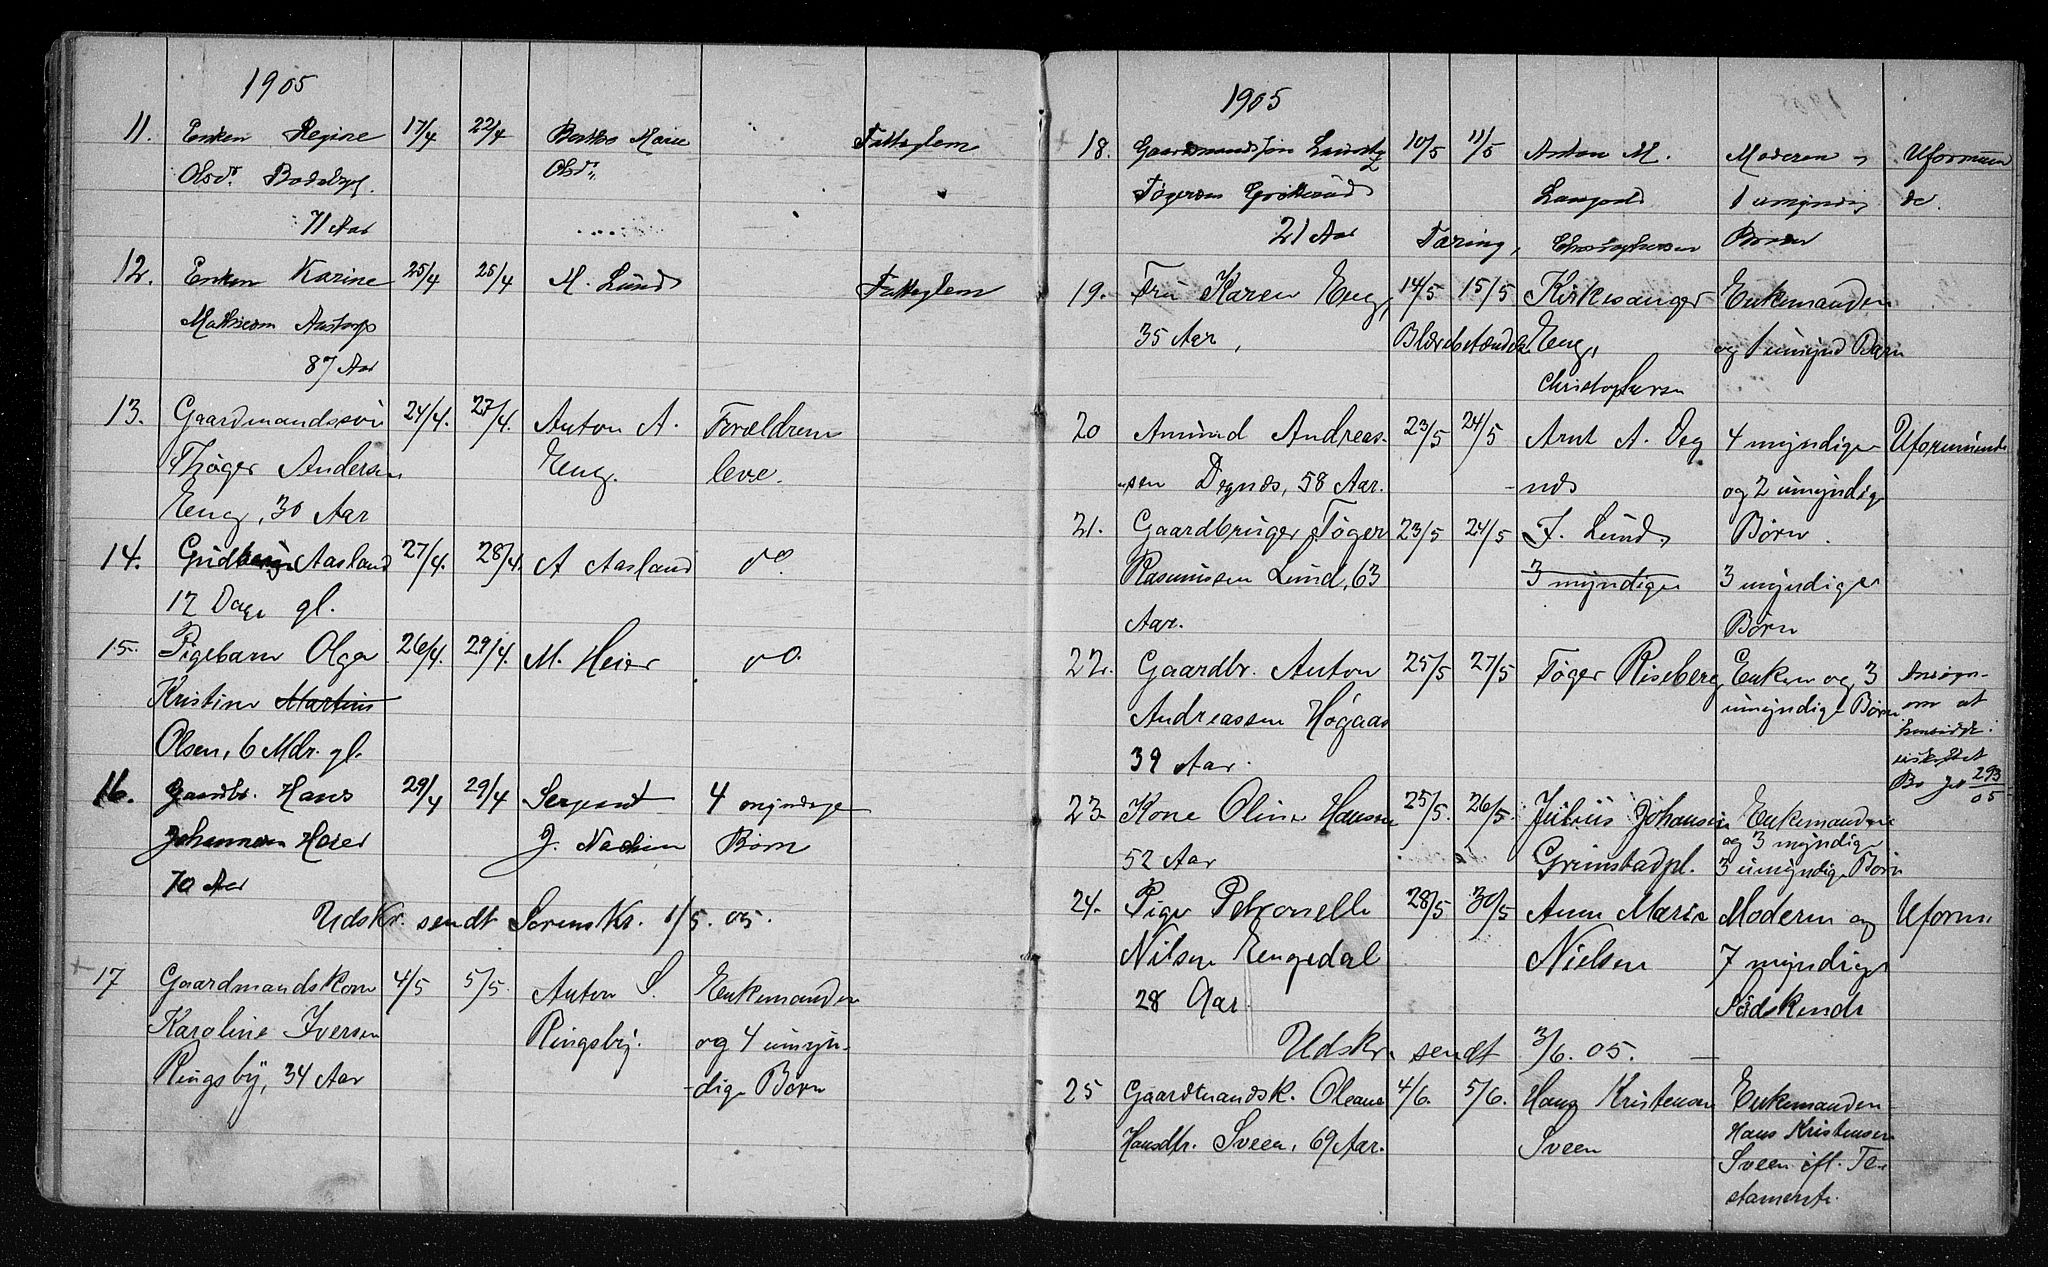 1905
11. Enken Regine 17/4 22/4 Berthe Marie Fatteglem
Olsdr. Olsdr.
71 Aar
12. Enken Karine 25/4 25/4 M. Lund Fatteglem
Mathisen Aastorp
87 Aar
13. Gaardmandssøn 24/4. 27/4. Anton A. Forældrene
Thøger Andersen Eeng. leve.
Eeng, 30 Aar
14. Aasland 27/4. 28/4 A Aasland do.
12 Dage gl.
15. Pigebarn Olga 26/4. 29/4. M. Heier do.
Kristine Martine
Olsen, 6 Mdr. gl.
16. Gaardbr. Hans 29/4 29/4 Sergeant 4 myndige
Johannesen Heier J. Børn
70 Aar
Udskr. sendt Sorenskr. 1/5. 05.
17 Gaardmandskone 4/5 5/5. Anton S. Enkemanden
Karoline Iversen Ringsby. og 4 umyn-
Ringsby, 34 Aar dige Børn
1905
18. Gaardmandssøn 10/5 11/5 Anton M. Moderen og Uformuen
Tøgersen Langved 1 umyndig de.
21 Aar Tæring, Christophersen
19. Fru Karen Eeng, 14/5 15/5 Kirkesanger Enkemanden
35 Aar, Eeng, og 1 umynd Barn
Christophersen
20 Amund Andreas- 23/5 24/5 Arnt A. Deg 4 myndige Uformuende
sen Degnæs, 58 Aar. -næs og 2 umyndige
21. Gaardbruger Tøger 23/5 24/5 J. Lund, Børn.
Rasmussen Lund, 63 3 myndige 3 myndige
Aar. Børn
22. Gaardbr. Anton 25/5 27/5 Tøger Riseberg Enken og 3
Andreassen Høgaas umyndige Børn om at
39 Aar. uskiftet
Bo Jol 293/05
23. Kone Oline Hansen 25/5. 26/5. Julius Johansen Enkemanden
og 3 myndige
52 Aar Grimstadpl. 3 umyndige Børn
24. Pige Petronelle 28/5 30/5 Anne Marie Moderen og Uform.
Nilsen Eengedal Nielsen 7 myndige
28 Aar. Sødskende
Udskr. sendt 3/6. 05.
25 Gaardmandsk. Oleane 4/6. 5/6. Hans Kristensen Enkemanden
Hansdtr. Sveen, 69 Aar. Sveen Hans Kristensen
Sveen ifl. Te-
stamente.